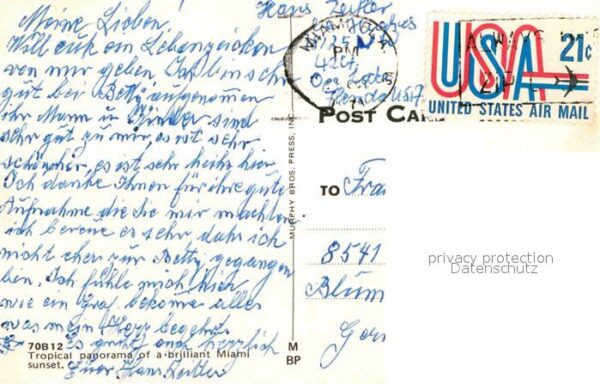 Meine Lieben!
Will euch ein Lebenzeichen
von mir geben Ich bin sehr
gut bei Betty aufgenommen
ihr Mann u Kinder sind
sehr gut zu mir, es ist sehr
schön hier, es ist sehr heiß hier
Ich danke Ihnen für ihre gute
Aufnahme die Sie mir machten
ich bereue es sehr dahs ich
nicht eher zur Betty gegangen
bin. Ich fühle mich hier
wie ein Graf bekome alles
was mein Herz begehrt
Es grüßt euch herzlich
Euer Hans Zeitler
70B12
Tropical panorama of a brilliant Miami
sunset.
Hans Zeitler
Florida USA
MURPHY BROS. PRESS, INC.
M
BP
MIAMI
PM
USA 21c
ZIP
UNITED STATES AIR MAIL
POST CAR
TO Fra
8541
Blum
Ger
privacy protection
Datenschutz